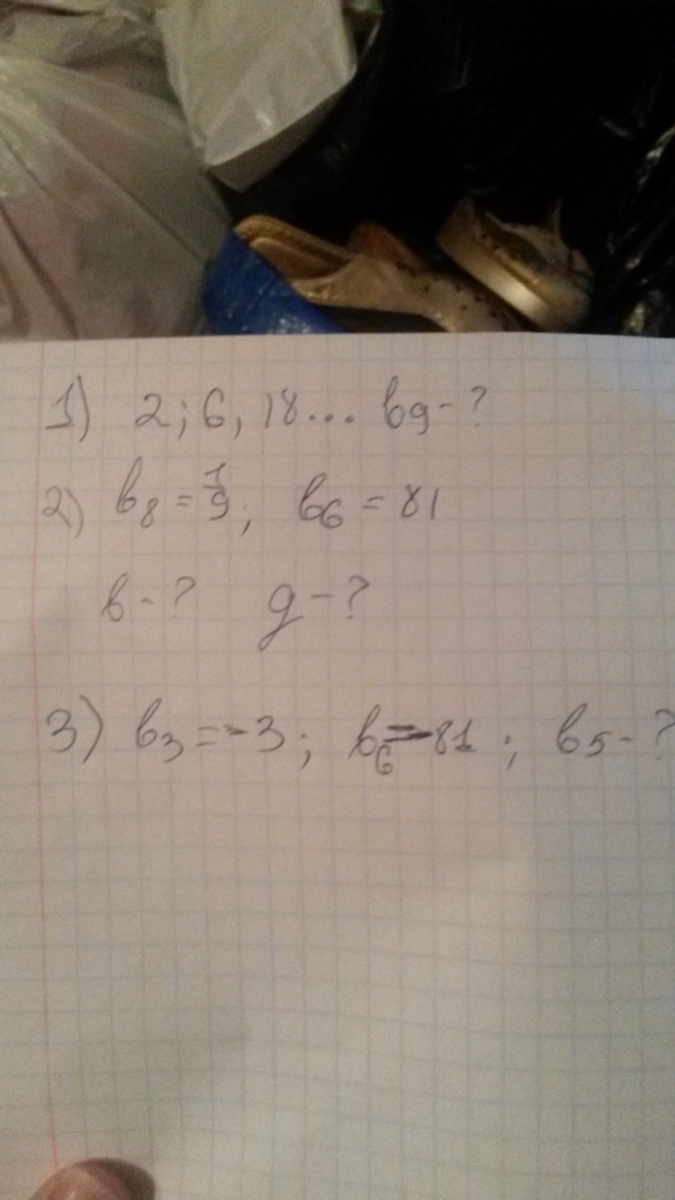 1) 2; 6, 18... b9-?
2) b8 = 1/9; b6 = 81
b-? q-?
3) b3 = -3; b6 = -81; b5-?